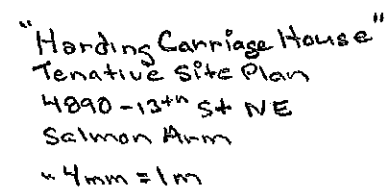 "Harding Carriage House"
Tenative Site Plan
4890-13th St NE
Salmon Arm
" 4mm = 1m